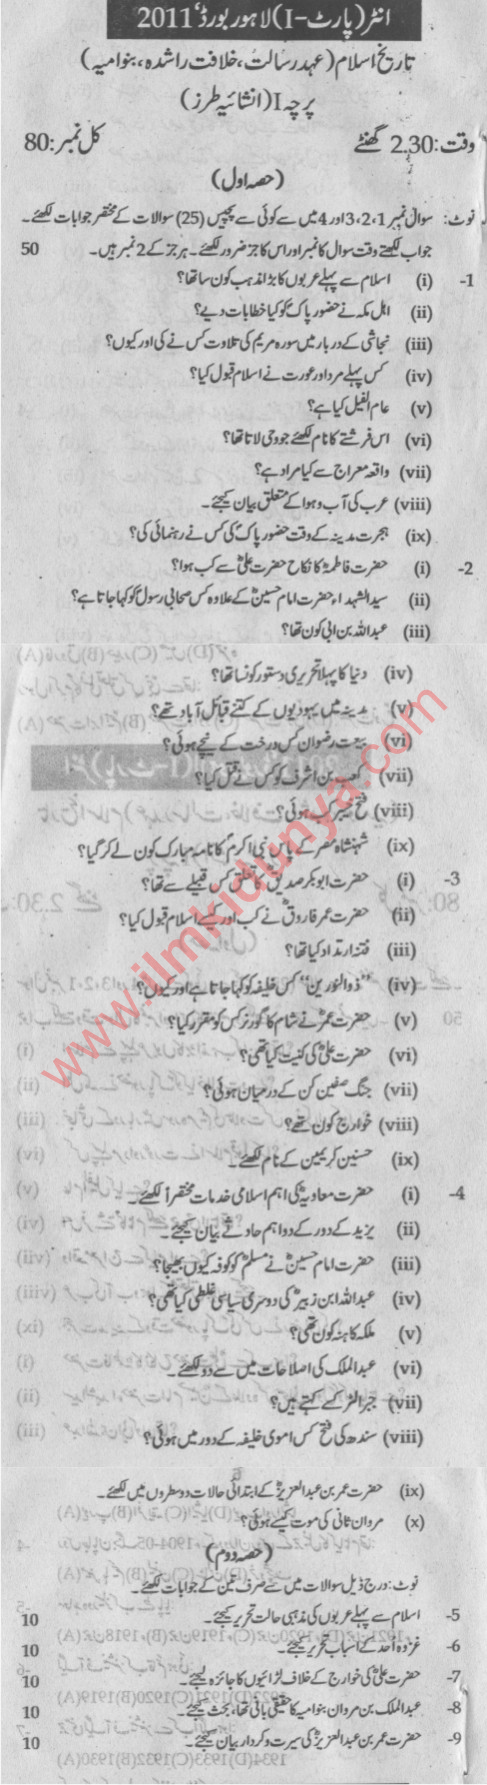 انٹر (پارٹ-I) لاہور بورڈ، 2011
تاریخ اسلام (عہد رسالت، خلافت راشدہ، بنو امیہ)
پرچہ I (انشائیہ طرز)
وقت: 2.30 گھنٹے کل نمبر: 80
(حصہ اول)
نوٹ: سوال نمبر 1، 2، 3 اور 4 میں سے کوئی سے پچیس (25) سوالات کے مختصر جوابات لکھئے۔
جواب لکھتے وقت سوال کا نمبر اور اس کا جز ضرور لکھئے۔ ہر جز کے 2 نمبر ہیں۔ 50
1- (i) اسلام سے پہلے عربوں کا بڑا مذہب کون سا تھا؟
(ii) اہل مکہ نے حضور پاکؐ کو کیا خطابات دیے؟
(iii) نجاشی کے دربار میں سورہ مریم کی تلاوت کس نے کی اور کیوں؟
(iv) کس پہلے مرد اور عورت نے اسلام قبول کیا؟
(v) عام الفیل کیا ہے؟
(vi) اس فرشتے کا نام لکھئے جو وحی لاتا تھا؟
(vii) واقعہ معراج سے کیا مراد ہے؟
(viii) عرب کی آب و ہوا کے متعلق بیان کیجئے۔
(ix) ہجرت مدینہ کے وقت حضور پاکؐ کی کس نے رہنمائی کی؟
2- (i) حضرت فاطمہؓ کا نکاح حضرت علیؓ سے کب ہوا؟
(ii) سید الشہداء حضرت امام حسینؓ کے علاوہ کس صحابی رسولؐ کو کہا جاتا ہے؟
(iii) عبداللہ بن ابی کون تھا؟
(iv) دنیا کا پہلا تحریری دستور کونسا تھا؟
(v) مدینہ میں یہودیوں کے کتنے قبائل آباد تھے؟
(vi) بیعت رضوان کس درخت کے نیچے ہوئی؟
(vii) کعب بن اشرف کو کس نے قتل کیا؟
(viii) فتح خیبر کب ہوئی؟
(ix) شہنشاہ مصر کے پاس نبی اکرمؐ کا نامہ مبارک کون لے کر گیا؟
3- (i) حضرت ابوبکر صدیقؓ کا تعلق کس قبیلے سے تھا؟
(ii) حضرت عمر فاروقؓ نے کب اور کیسے اسلام قبول کیا؟
(iii) فتنہ ارتداد کیا تھا؟
(iv) "ذوالنورین" کس خلیفہ کو کہا جاتا ہے اور کیوں؟
(v) حضرت عمرؓ نے شام کا گورنر کس کو مقرر کیا؟
(vi) حضرت علیؓ کی کنیت کیا تھی؟
(vii) جنگ صفین کن کے درمیان ہوئی؟
(viii) خوارج کون تھے؟
(ix) حسنین کریمین کے نام لکھئے۔
4- (i) حضرت معاویہؓ کی اہم اسلامی خدمات مختصراً لکھئے۔
(ii) یزید کے دور کے دو اہم حادثے بیان کیجئے۔
(iii) حضرت امام حسینؓ نے مسلمؓ کو کوفہ کیوں بھیجا؟
(iv) عبداللہ ابن زبیرؓ کی دوسری سیاسی غلطی کیا تھی؟
(v) ملکہ کاہنہ کون تھی؟
(vi) عبدالملک کی اصلاحات میں سے دو لکھئے۔
(vii) جبرالٹر کسے کہتے ہیں؟
(viii) سندھ کی فتح کس اموی خلیفہ کے دور میں ہوئی؟
(ix) حضرت عمر بن عبدالعزیزؒ کے ابتدائی حالات دو سطروں میں لکھئے۔
(x) مروان ثانی کی موت کیسے ہوئی؟
(حصہ دوم)
نوٹ: درج ذیل سوالات میں سے صرف تین کے جوابات لکھئے۔
5- اسلام سے پہلے عربوں کی مذہبی حالت تحریر کیجئے۔ 10
6- غزوہ احد کے اسباب تحریر کیجئے۔ 10
7- حضرت علیؓ کی خوارج کے خلاف لڑائیوں کا جائزہ لیجئے۔ 10
8- عبدالملک بن مروان بنو امیہ کا حقیقی بانی تھا، بحث کیجئے۔ 10
9- حضرت عمر بن عبدالعزیزؒ کی سیرت و کردار بیان کیجئے۔ 10
www.ilmkidunya.com